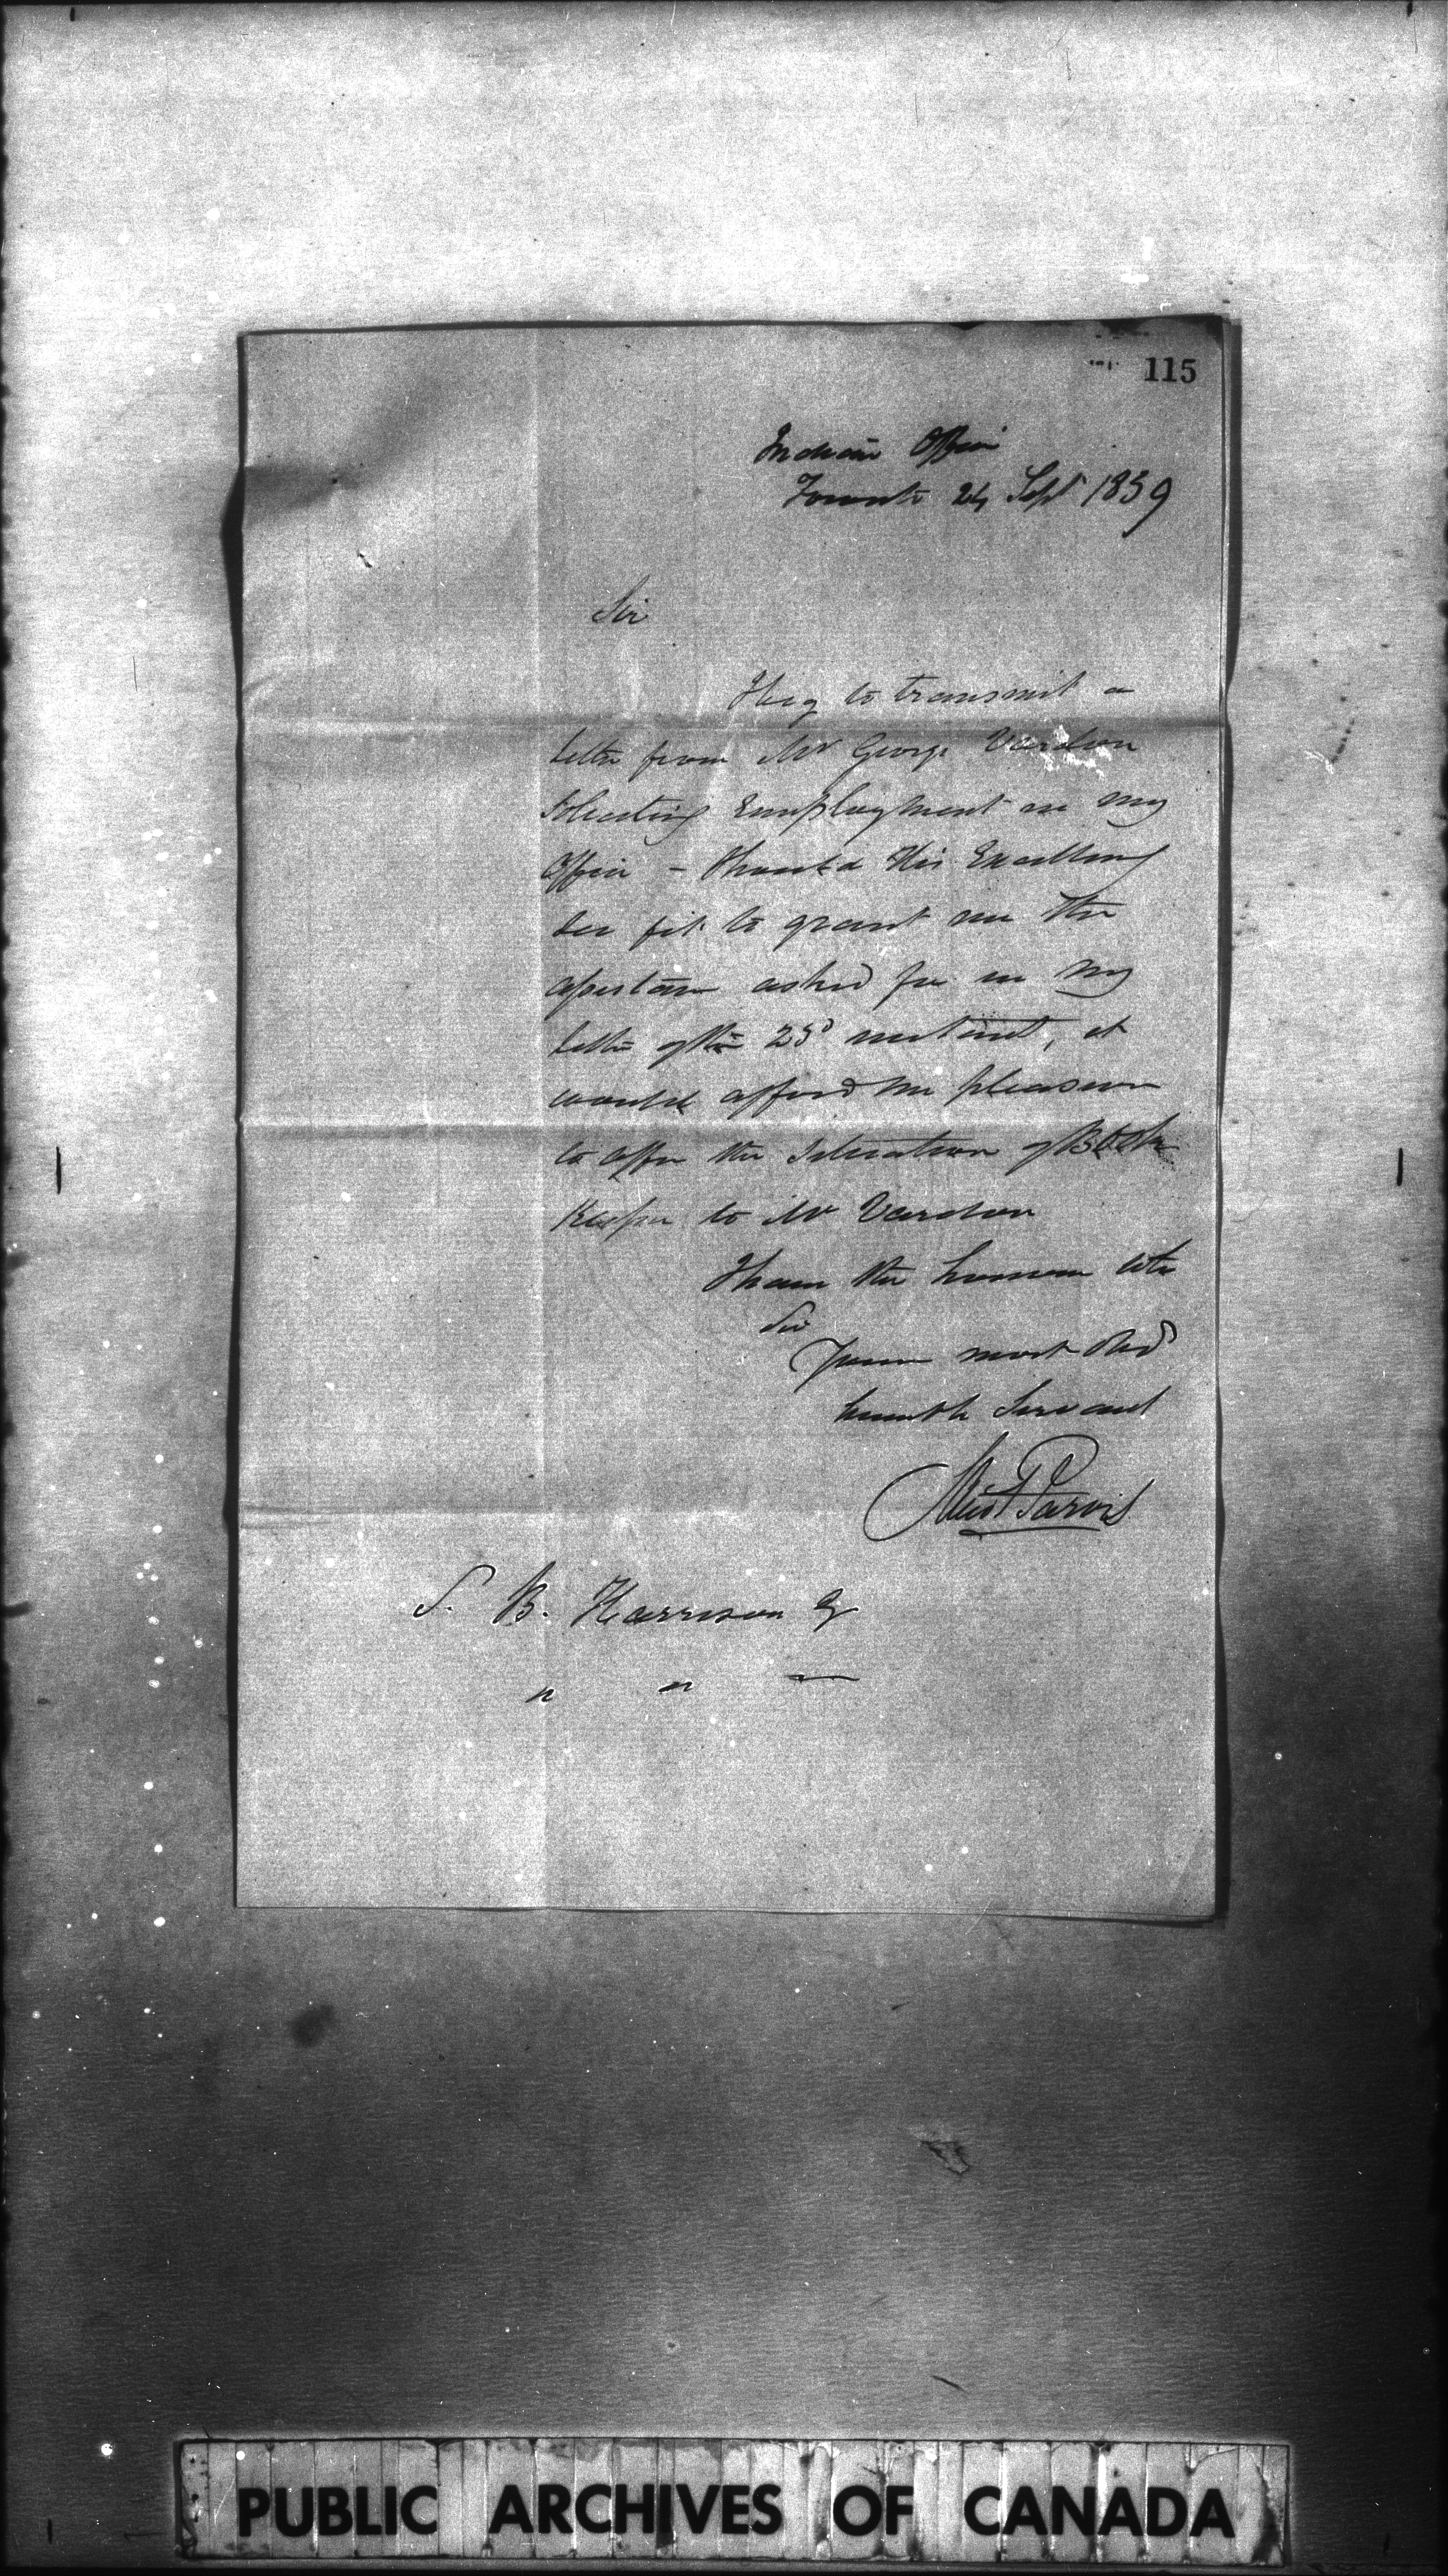 115
Indian Office
Toronto 24 Sept 1839
Sir
I beg to transmit a
letter from Mr George Vardon
soliciting Employment in my
Office - Should His Excellency
see fit to grant me the
assistance asked for in my
letter of the 23d instant, it
would afford me pleasure
to offer the situation of Book
Keeper to Mr Vardon
I have the honour to be
Sir
Your most Obed
humble Servant
Jarvis
S. B. Harrison Esq
" " —
PUBLIC ARCHIVES OF CANADA